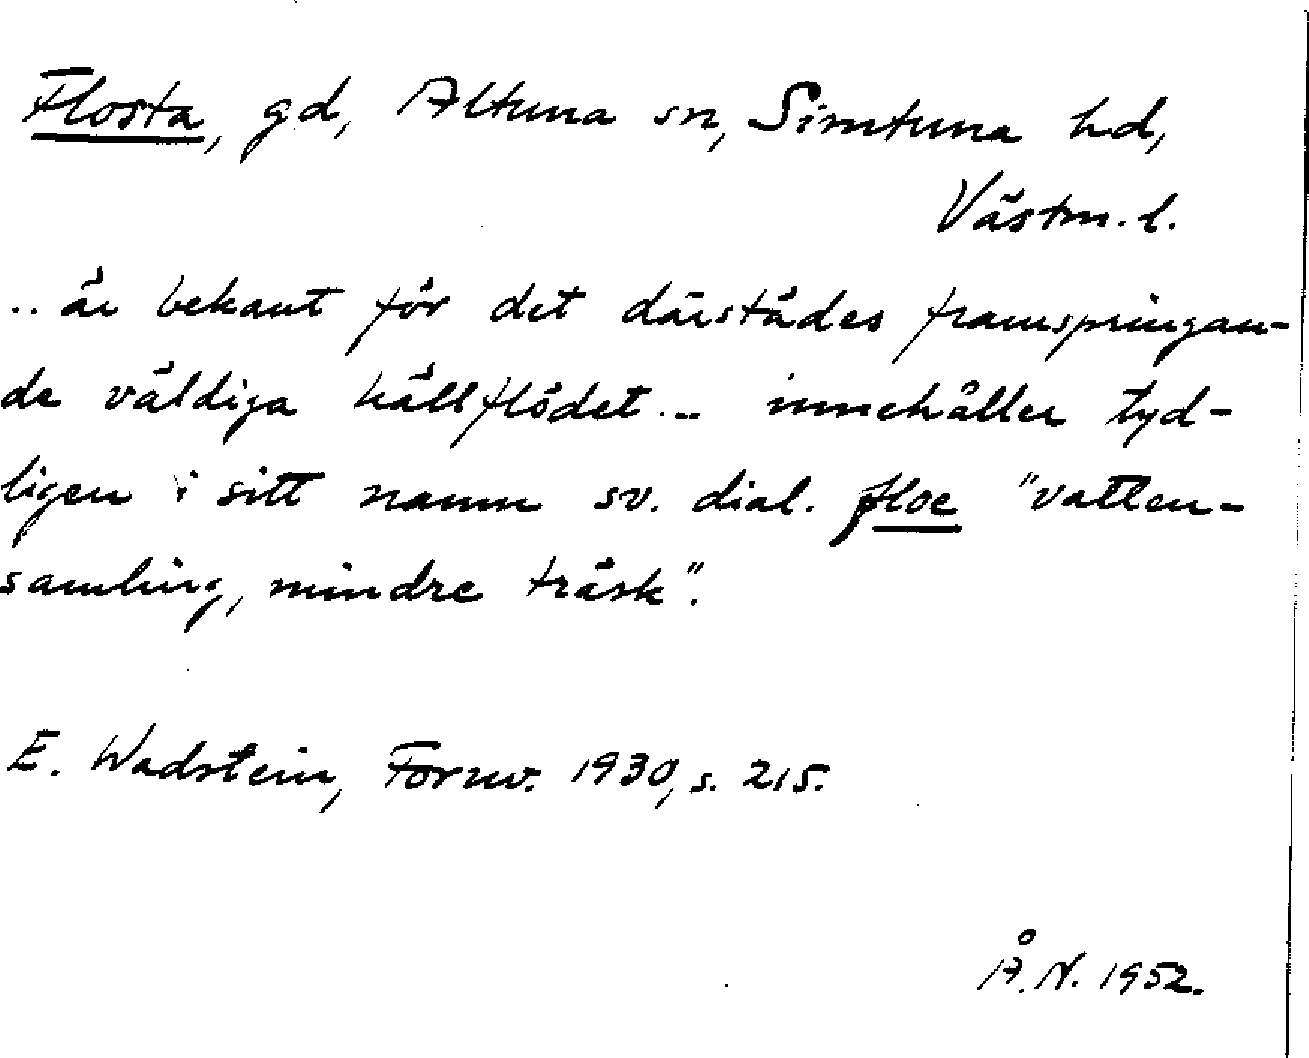 Flosta, gd, Altuna sn, Simtuna hd,
Västm. l.
.. är bekant för det därstädes framspringan-
de väldiga källflödet... innehåller tyd-
ligen i sitt namn sv. dial. floe "vatten-
samling, mindre träsk".
E. Wadstein, Fornv. 1930, s. 215.
Å. N. 1952.